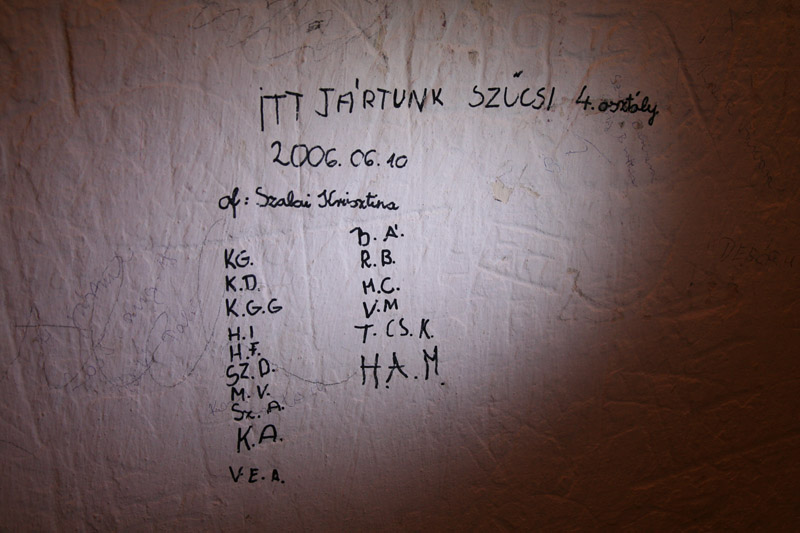 ITT JÁRTUNK SZŰCSI 4. osztály
2006. 06. 10
of: Szalai Krisztina
KG.
K.D.
K.G.G
H.I
H.F.
SZ.D.
M.V.
Sz.A.
K.A.
V.E.A.
B.Á.
R.B.
M.C.
V.M
T.CS.K.
H.A.M.